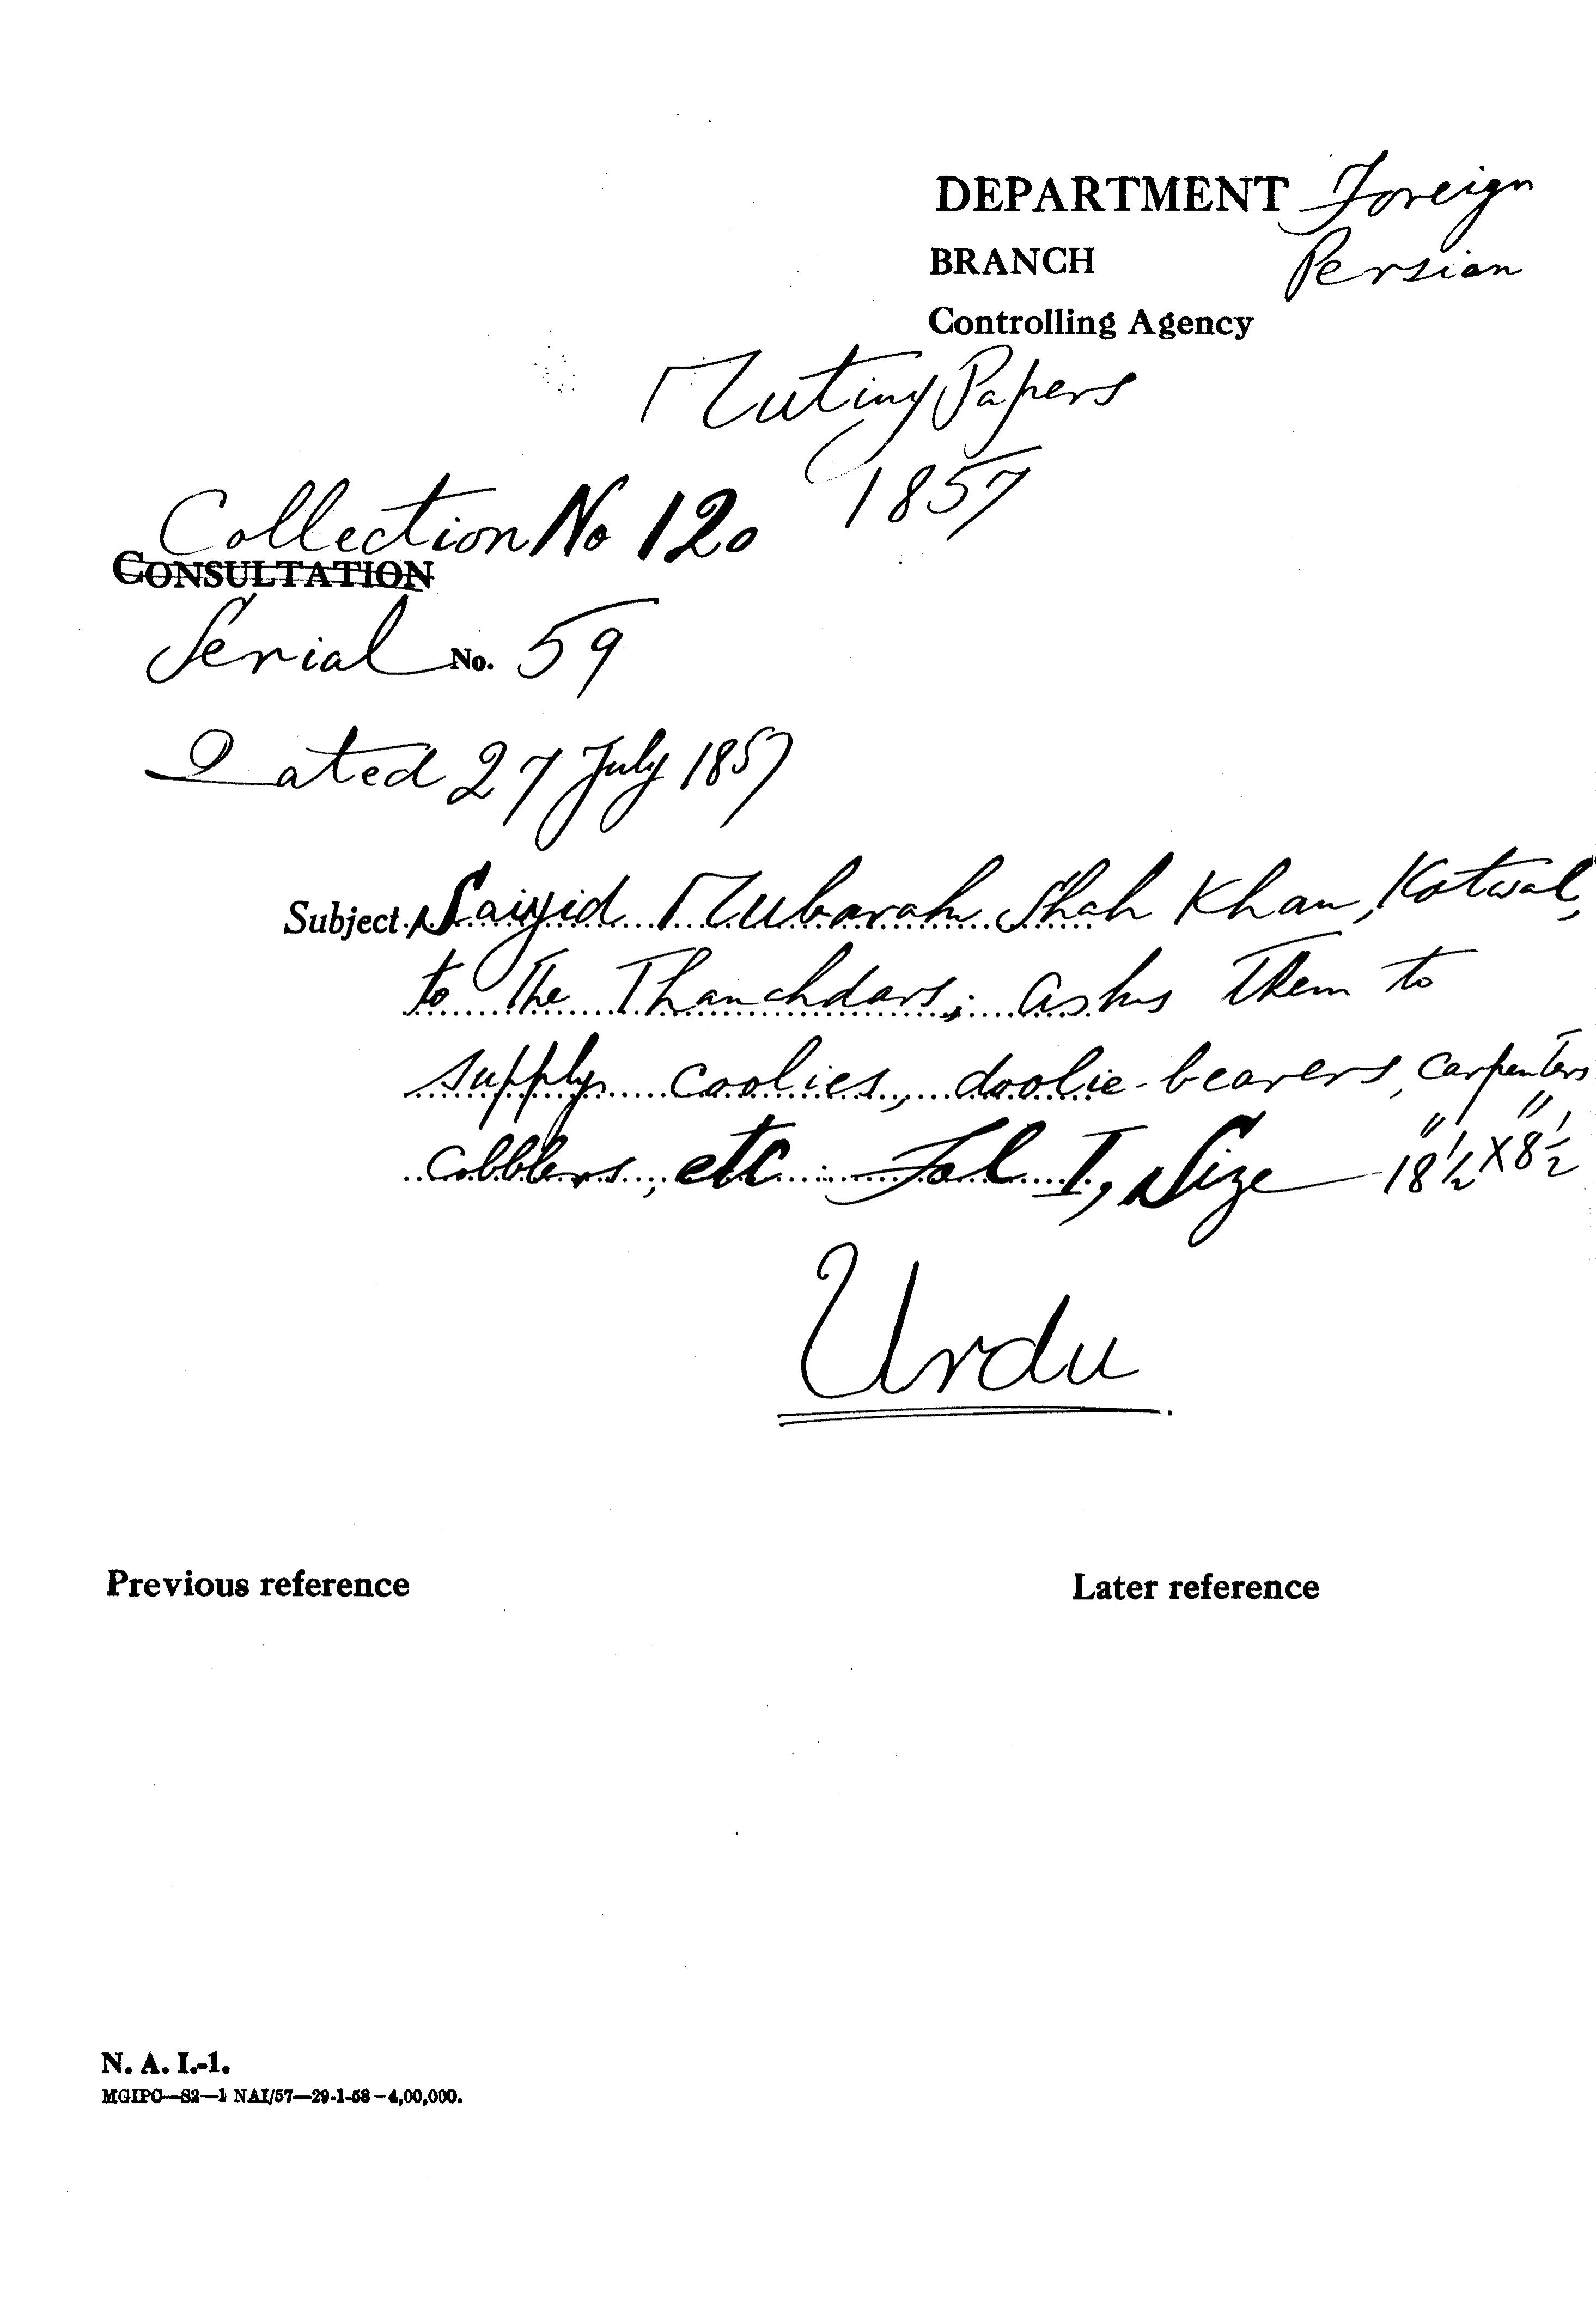 DEPARTMENT Foreign
BRANCH Persian
Controlling Agency
Mutiny Papers
1857
Collection No 120
CONSULTATION
Serial No. 59
Dated 27 July 1857
Subject Saiyid Mubarak Shah Khan, Kotwal,
to the Thanahdars; asks them to
supply coolies, doolie-bearers, carpenters
cobblers, etc. Fol I, Size 18½" X 8½"
Urdu
Previous reference
Later reference
N. A. I.-1.
MGIPC—S2—1 NAI/57—29-1-58—4,00,000.